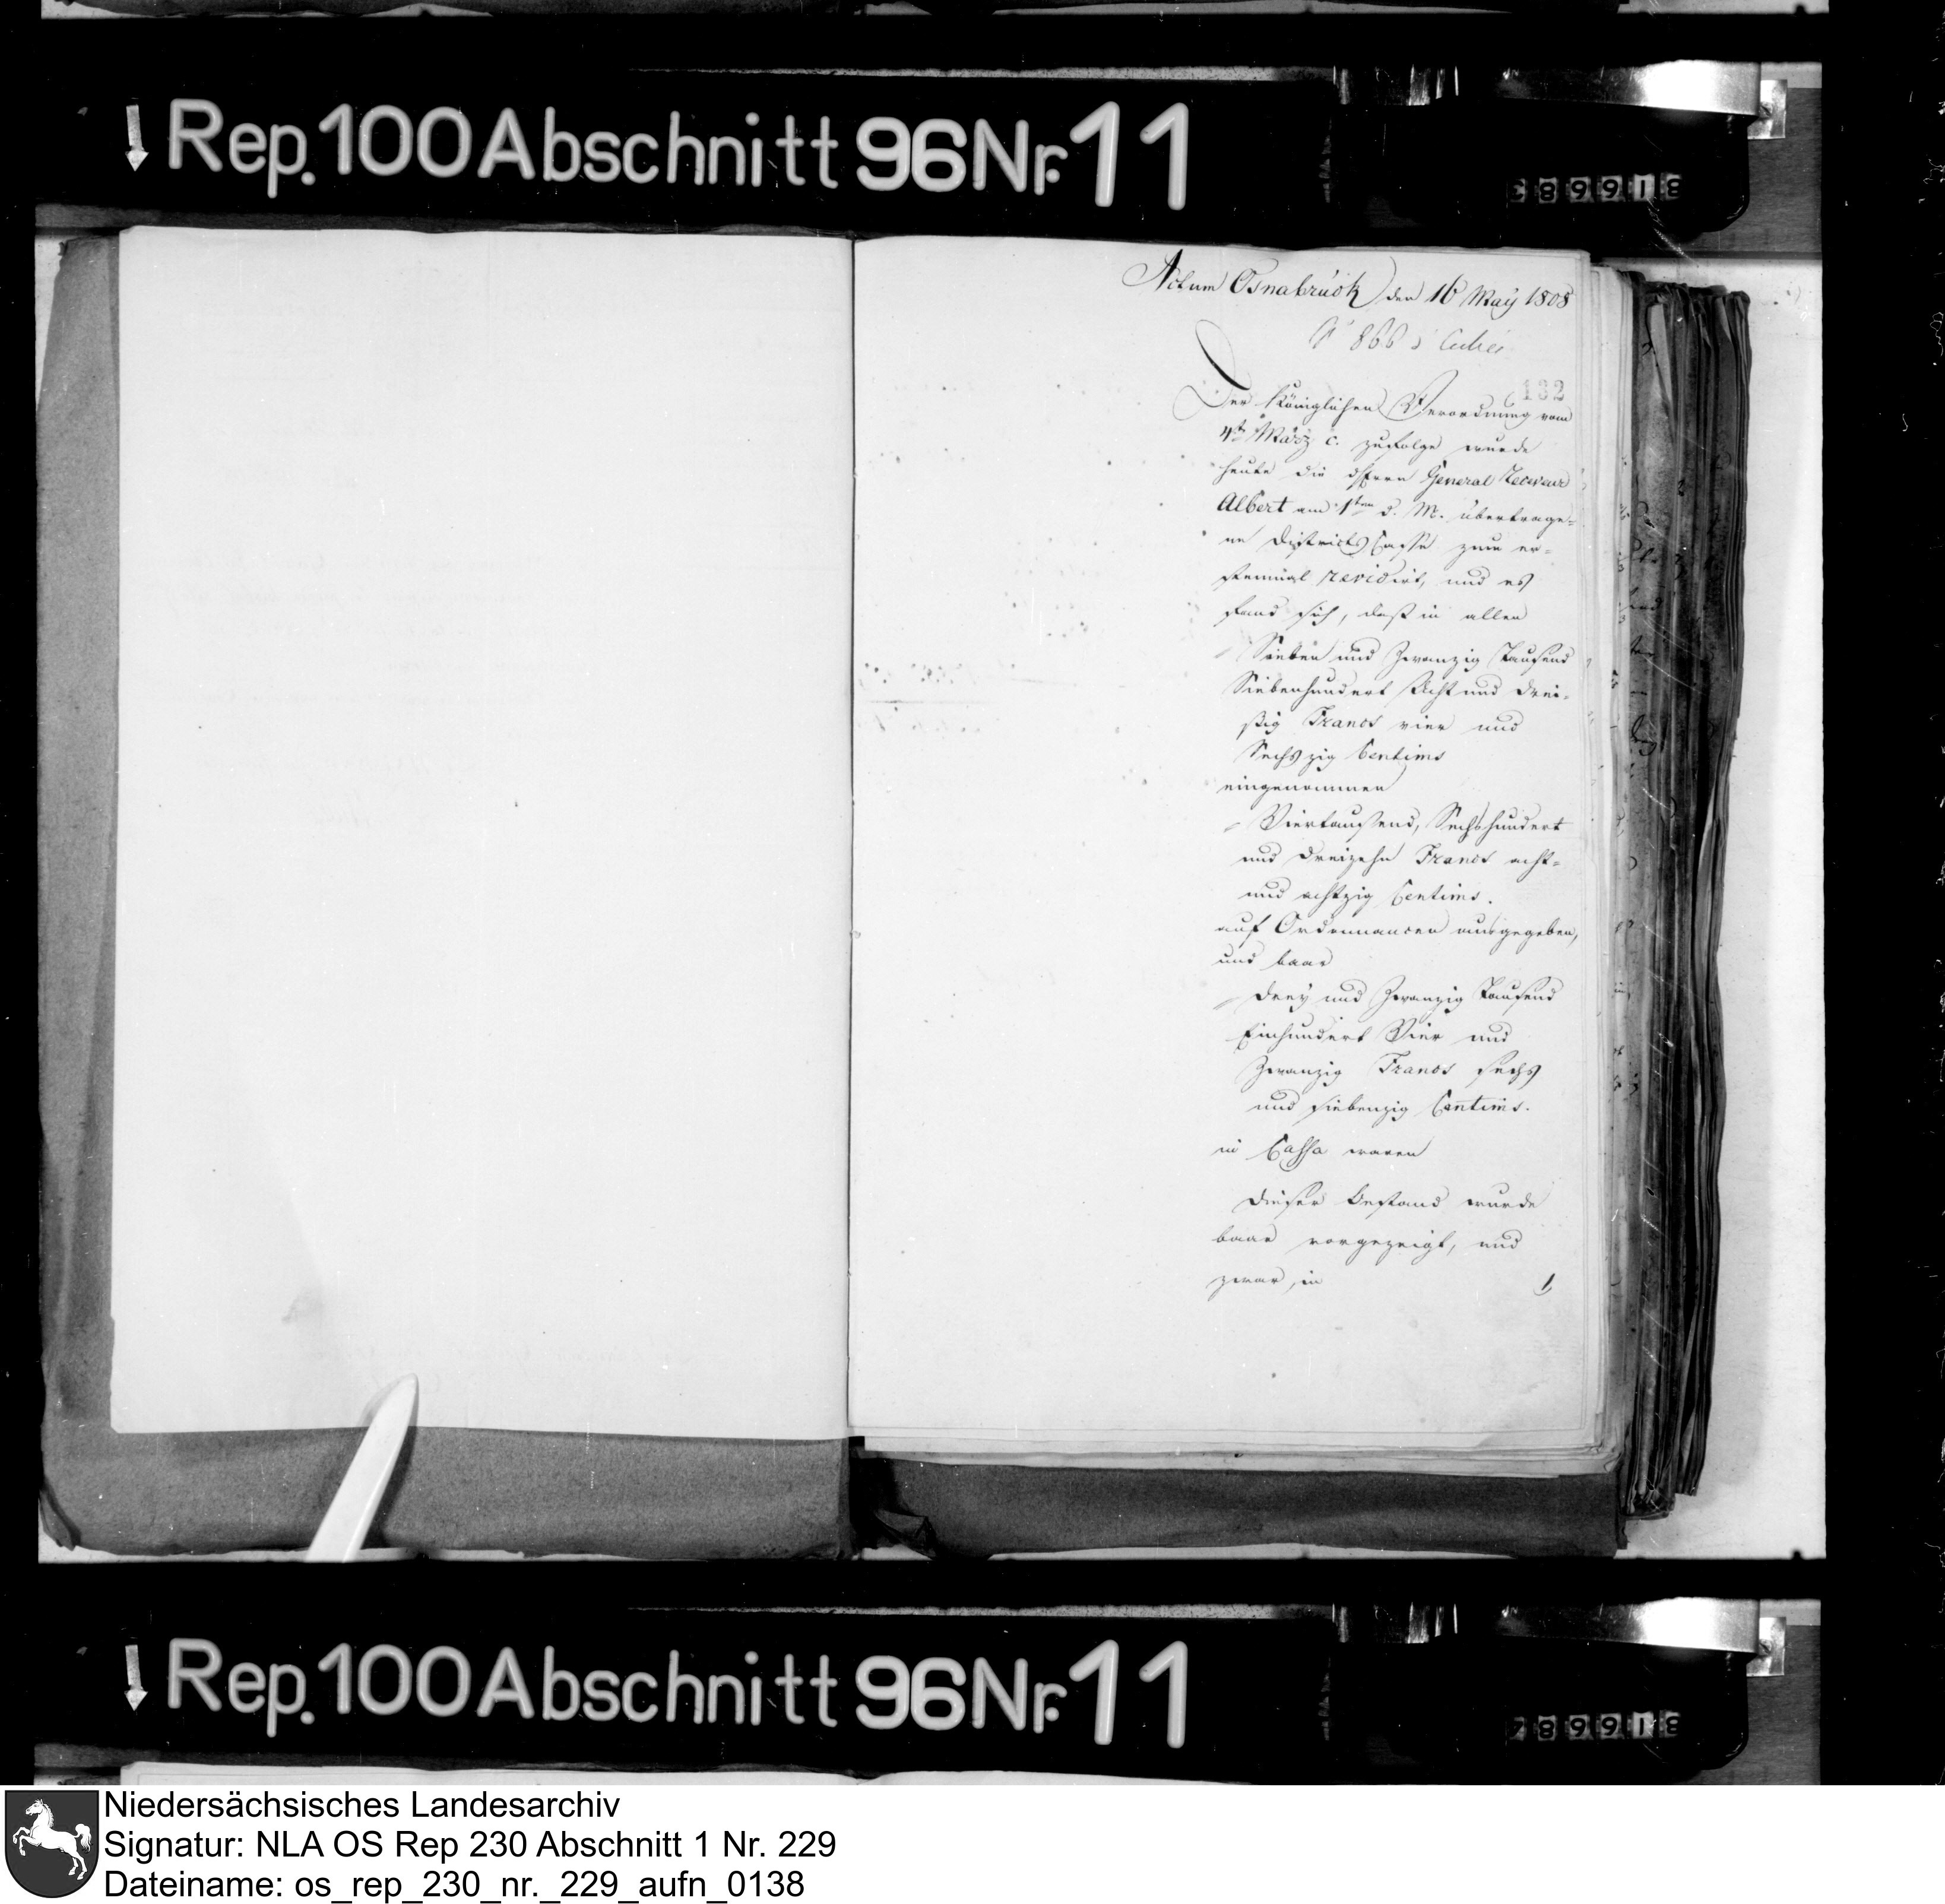 Rep. 100 Abschnitt 96 Nr. 11
Actum Osnabrück den 16 May 1808
132
Der Königlichen Verordnung vom
4ten März c. zufolge wurde
heute die dem Herrn General Receveur
Albert am 1sten d. M. übertrage=
ne Districts Casse zum er=
stenmal revidirt, und es
fand sich, daß in allen
Sieben und Zwanzig Tausend
Siebenhundert Acht und Drei=
ßig Francs vier und
Sechszig Centims
eingenommen
Viertausend, Sechshundert
und Dreizehn Francs acht=
und achtzig Centims.
auf Ordonnancen ausgegeben,
und baar
Drey und Zwanzig Tausend
Einhundert Vier und
Zwanzig Francs sechs
und siebenzig Centims.
in Cassa waren
Dieser Bestand wurde
baar vorgezeigt, und
zwar, in
1
Rep. 100 Abschnitt 96 Nr. 11
Niedersächsisches Landesarchiv
Signatur: NLA OS Rep 230 Abschnitt 1 Nr. 229
Dateiname: os_rep_230_nr._229_aufn_0138